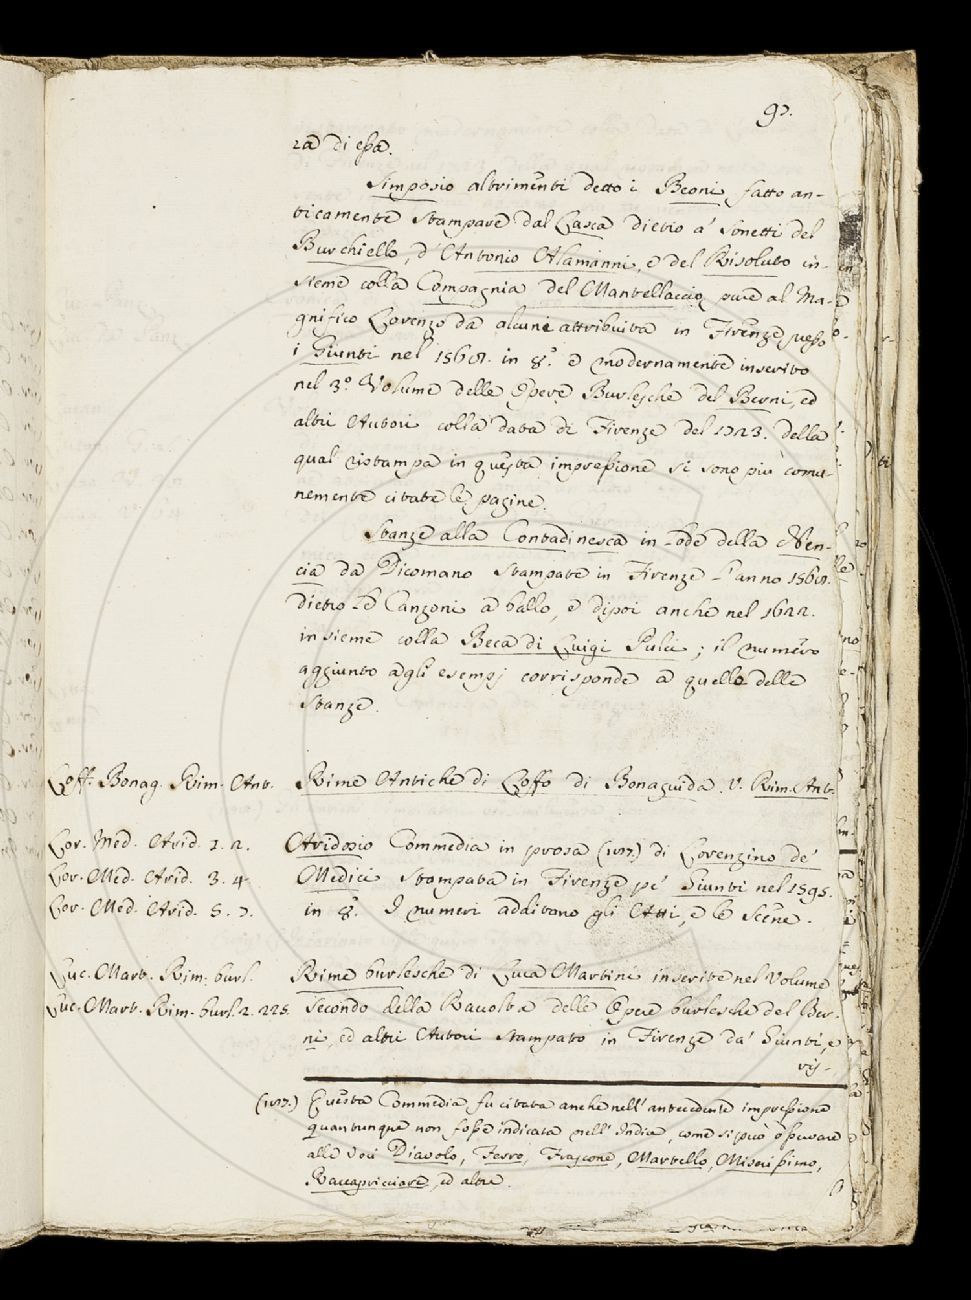 97.
ra di essa.
Simposio altrimenti detto i Beoni fatto an-
ticamente stampare dal Lasca dietro a' Sonetti del
Burchiello, d'Antonio Alamanni, e del Risoluto in-
sieme colla Compagnia del Mantellaccio pure al Ma-
gnifico Lorenzo da alcuni attribuita in Firenze presso
i Giunti nel 1568. in 8.º e modernamente inserito
nel 3.º Volume delle Opere Burlesche del Berni, ed
altri Autori colla data di Firenze del 1723. della
qual ristampa in questa impressione si sono più comu-
nemente citate le pagine.
Stanze alla Contadinesca in lode della Nen-
cia da Dicomano stampate in Firenze l'anno 1568.
dietro le Canzoni a ballo, e dipoi anche nel 1622.
insieme colla Beca di Luigi Pulci; il numero
aggiunto agli esempj corrisponde a quello delle
Stanze.
Loff. Bonag. Rim. Ant. Rime Antiche di Loffo di Bonaguida. V. Rim. Ant.
Lor. Med. Arid. 1. 2. Aridosio Commedia in prosa (197.) di Lorenzino de'
Lor. Med. Arid. 3. 4. Medici stampata in Firenze pe' Giunti nel 1595.
Lor. Med. Arid. 5. 7. in 8.º I numeri additano gli Atti, e le Scene.
Luc. Mart. Rim. burl. Rime burlesche di Luca Martini inserite nel Volume
Luc. Mart. Rim. burl. 2. 225. Secondo della Raccolta delle Opere burlesche del Ber-
ni, ed altri Autori stampato in Firenze da' Giunti, e
ris-
(197.) Questa Commedia fu citata anche nell'antecedente impressione
quantunque non fosse indicata nell'Indice, come si può osservare
alle Voci Diavolo, Ferro, Frascone, Martello, Miserissimo,
Raccapricciare, ed altre.